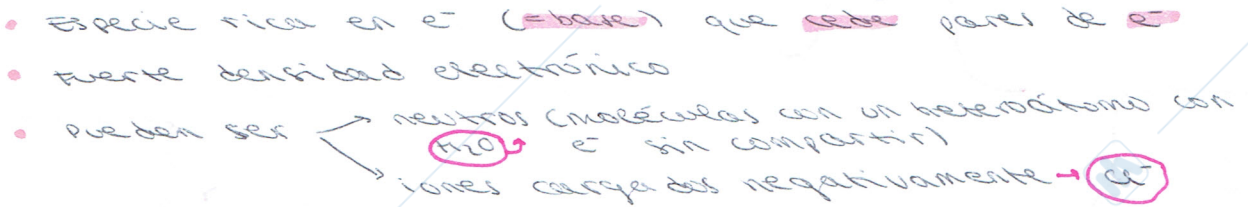 • Especie rica en e⁻ (=base) que cede pares de e⁻
• Fuerte densidad electrónico
• Pueden ser → neutros (moléculas con un heteroátomo con
H2O e⁻ sin compartir)
→ iones cargados negativamente → Cl⁻